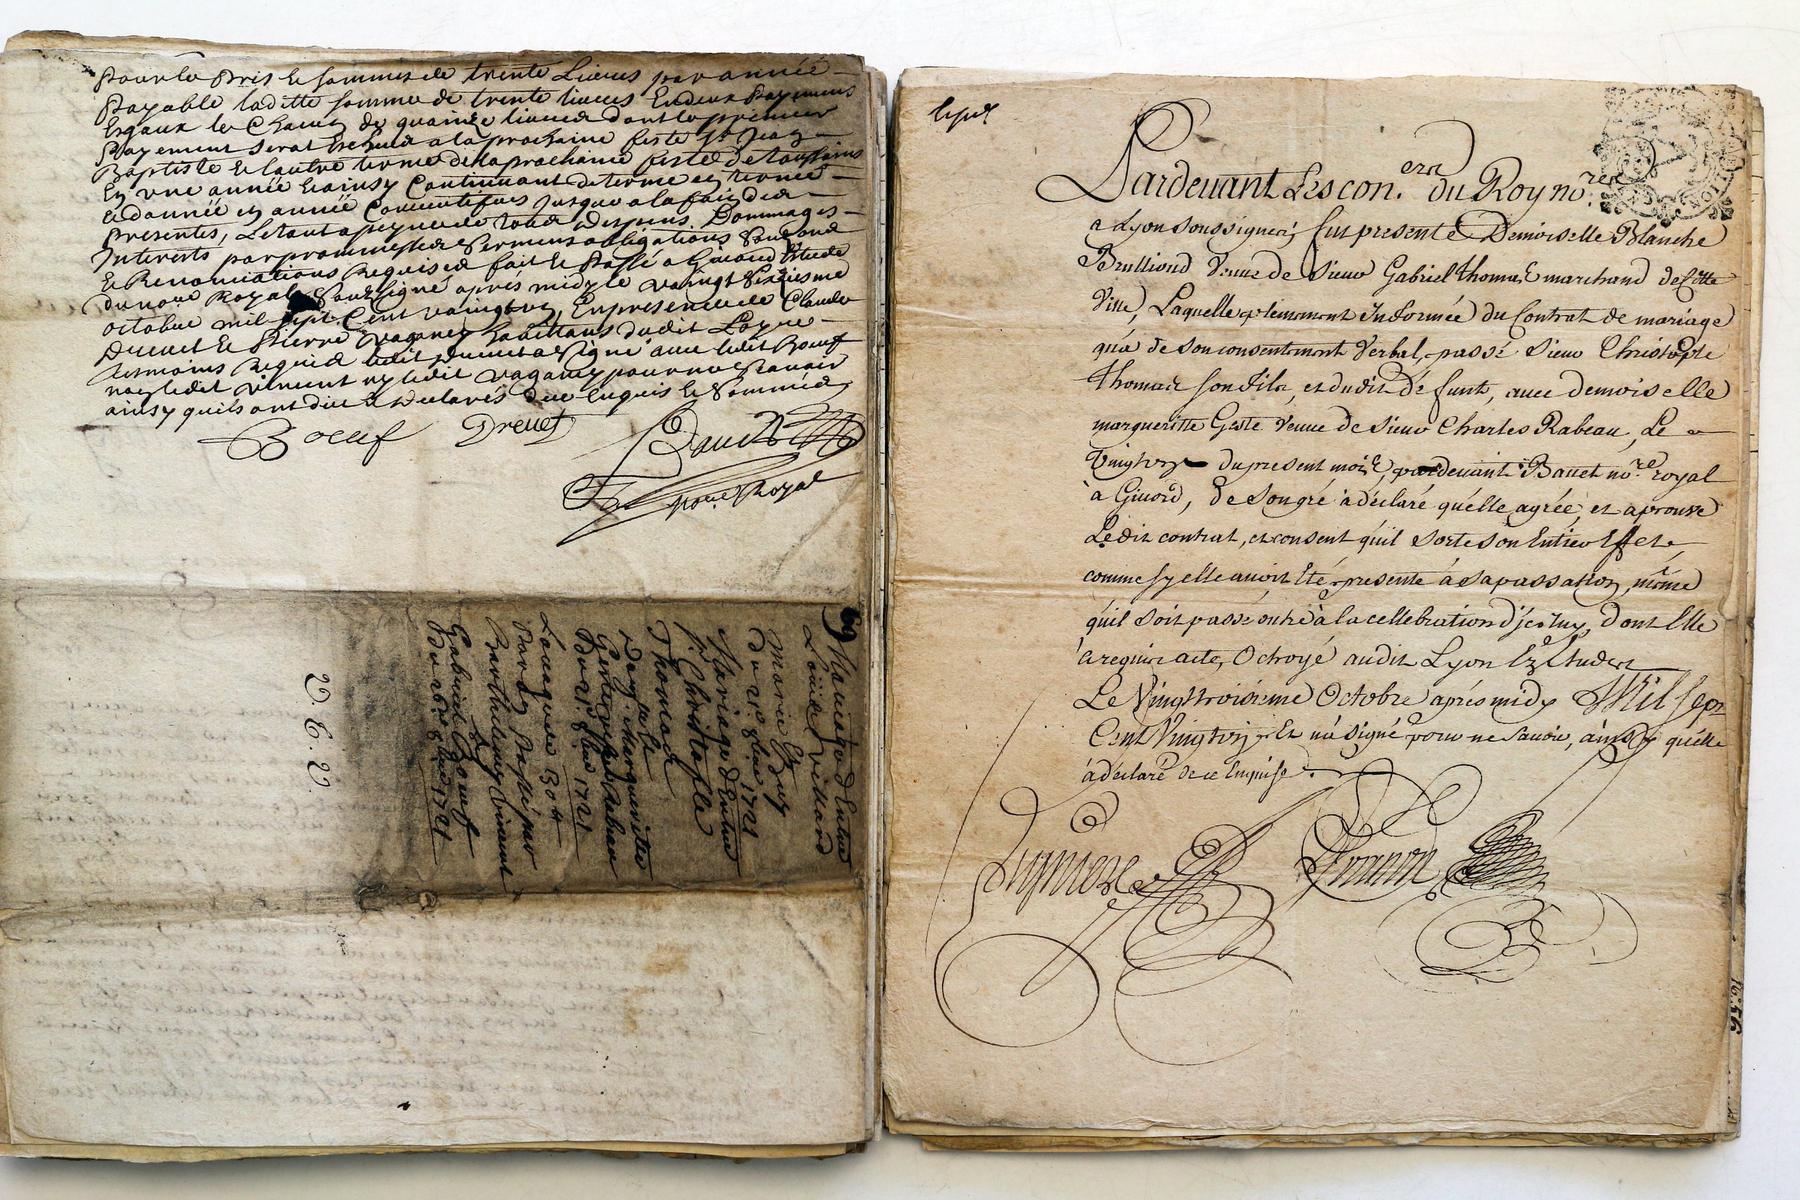 Pour le Pris et sommes de trente Livres par année
Payable laditte somme de trente livres En deux Payemens
Esgaux de Chacun de quinze livres dont le premier
Payement serat a la prochaine feste St Jean
Baptiste et lautre terme de la prochaine feste de toussains
En une année et ainsy Continuant de terme en terme
et dannée en année Consecutifves jusque a la fain des
presentes, Le tout a peyne de tous despens Dommages
Interests par promesses Serment obligations
et Renonciations Requises fait et Passé a Givord Estude
du nore Royal Soussigné aprés midy le vaingt Sixiesme
octobre mil sept Cent vaingt un, En presence de Claude
Dreuet et Pierre Vaganey habitans dudit Loyre
tesmoins Requis ledit Dreuet a Signé avec ledit Boeuf
non ledit vincent ny ledit vaganey pour ne scavoir
ainsy quils ont dit et declarés de ce Enquis et Sommés
Boeuf Dreuet Banet
nore Royal
69
Louise Villiard
Marie
Du 21e 8bre 1721
Mariage d'Entre
Sr. Christofle
Thomas
Marguerite
Geste
Du 21e 8bre 1721
Barthelemy Vincent
a
Gabriel Boeuf
Du 26e 8bre 1721
V. E. V.
Pardevant Les con.ers du Roy no.res
a Lyon soussignes, fut presente Demoiselle Blanche
Brulliond Veuve de Sieur Gabriel thomas marchand de Cette
Ville, Laquelle plennement Informée du Contrat de mariage
qu'a de son consentement Verbal, passé Sieur Christophle
thomas son fils, et dudit Défunt, avec demoiselle
margueritte Geste Veuve de Sieur Charles Rabeau, Le
Vingt un du present mois, pardevant Banet nore royal
à Givord, de son gré a déclaré qu'elle agrée, et aprouve
Ledit contrat, et consent qu'il Sorte son Entier Effet,
comme sy elle avoit Eté presente à sa passation, mème
qu'il soit passé outre à la cellebration d'jceluy, dont Elle
à requis acte, Octroyé audit Lyon Ez Etudes
Le Vingt troisiéme Octobre aprés midy Mil sept
Cent Vingt un, Et n'a signé pour ne savoir, ainsy qu'elle
à déclaré de ce Enquise.